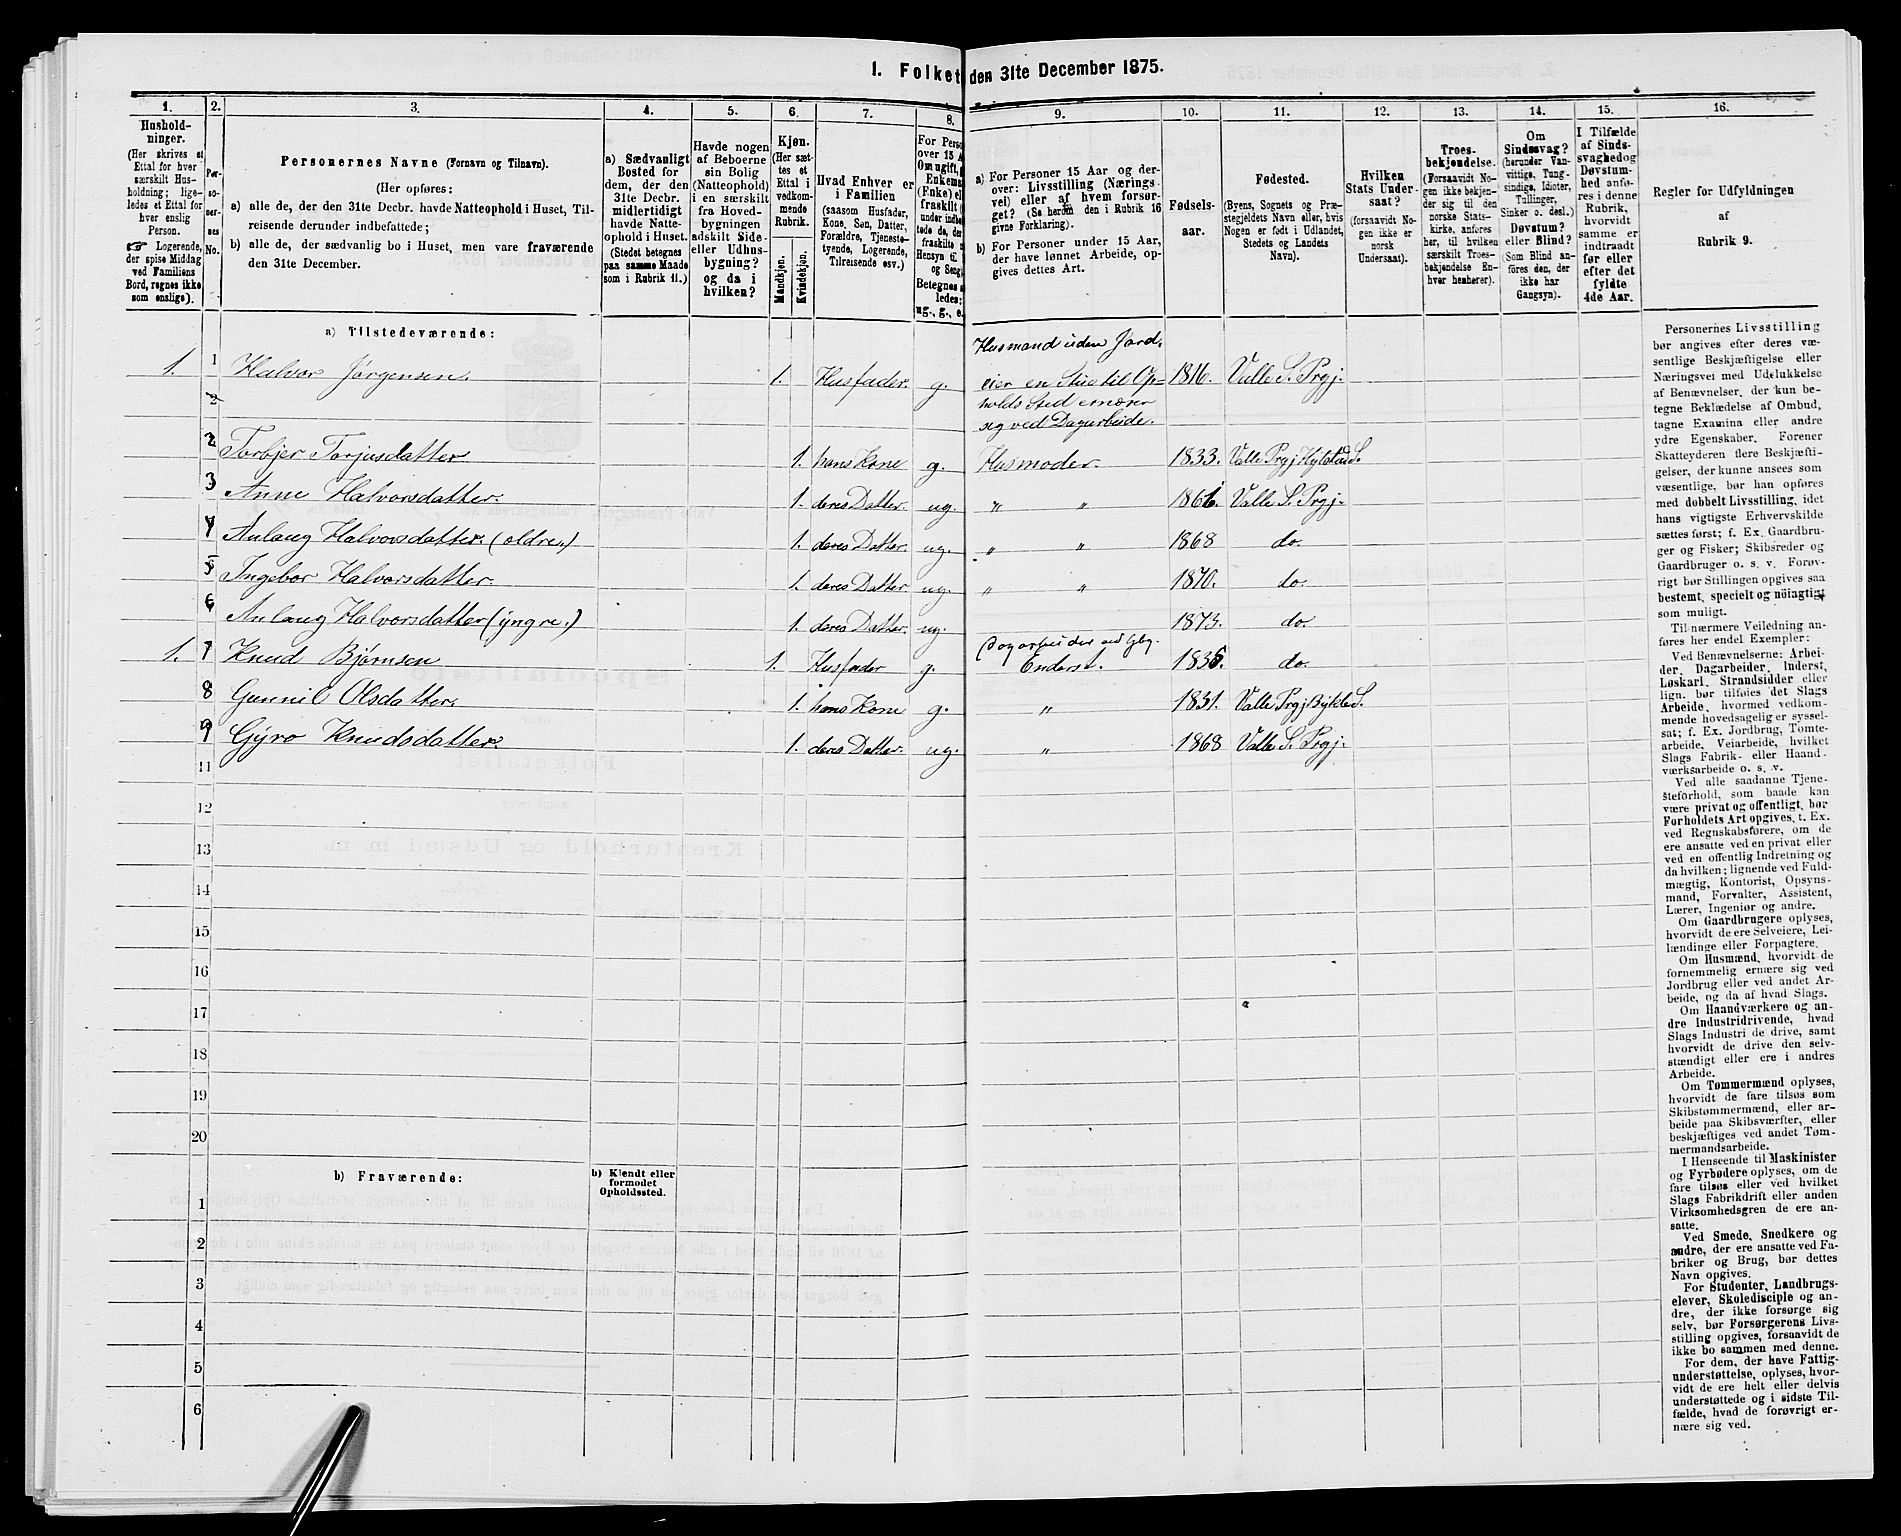 1. Folket den 31te December 1875.
1. 2. 3. 4. 5. 6. 7. 8. 9. 10. 11. 12. 13. 14. 15. 16.
Husholdninger.
(Her skrives et
Ettal for hver
særskilt Husholdning;
ligeledes et Ettal for
hver enslig
Person.
☞ Logerende,
der spise Middag
ved Familiens
Bord, regnes ikke
som enslige).
Personernes No.
Personernes Navne (Fornavn og Tilnavn).
(Her opføres:
a) alle de, der den 31te Decbr. havde Natteophold i Huset, Tilreisende derunder indbefattede;
b) alle de, der sædvanlig bo i Huset, men vare fraværende
den 31te December.
a) Sædvanligt
Bosted for
dem, der den
31te Decbr.
midlertidigt
havde Natteophold
i Huset.
(Stedet betegnes
paa samme Maade
som i Rubrik 11.)
Havde nogen
af Beboerne
sin Bolig
(Natteophold)
i en særskilt
fra Hovedbygningen
adskilt Side-
eller Udhusbygning?
og da i
hvilken?
Kjøn.
(Her sættes et
Ettal i
vedkommende
Rubrik.
Mandkjøn.
Kvindekjøn.
Hvad Enhver er
i Familien
(saasom Husfader,
Kone, Søn, Datter,
Forældre, Tjenestetyende,
Logerende,
Tilreisende osv.)
a) For Personer 15 Aar og derover:
Livsstilling (Næringsvei)
eller af hvem forsørget?
(Se herom den i Rubrik 16
givne Forklaring).
b) For Personer under 15 Aar,
der have lønnet Arbeide, opgives
dettes Art.
Fødselsaar.
Fødested.
(Byens, Sognets og Præstegjeldets
Navn eller, hvis
Nogen er født i Udlandet,
Stedets og Landets
Navn).
Hvilken
Stats Undersaat?
(forsaavidt Nogen
ikke er
norsk
Undersaat).
Troesbekjendelse.
(Forsaavidt Nogen
ikke bekjender
sig til den
norske Statskirke,
anføres
her, til hvilken
særskilt Troesbekjendelse
Enhver
henhører).
Om
Sindssvag?
(herunder Vanvittige,
Tungsindige,
Idioter,
Tullinger,
Sinker o. desl.)
Døvstum?
eller Blind?
(Som Blind anføres
den, der
ikke har
Gangsyn).
I Tilfælde
af Sindssvaghed
og
Døvstumhed
anføres
i denne
Rubrik,
hvorvidt
samme er
indtraadt
før eller
efter det
fyldte
4de Aar.
Regler for Udfyldningen
af
Rubrik 9.
a) Tilstedeværende:
Husmand uden Jord.
1. 1 Halvor Jørgensen. 1. Husfader. g. eier en Stue til Op= 1816. Valle S. Prgj.
2 holds Sted ernærer
sig ved Dagarbeide.
2 Torbjer Torjusdatter 1. hans Kone g. Husmoder. 1833. Valle Prgj Hylestad S.
3 Anne Halvorsdatter. 1. deres Datter. ug. " " 1861. Valle S. Prgj.
4 Aslaug Halvorsdatter. (ældre.) 1. deres Datter. ug. " " 1868 do.
5 Ingebor Halvorsdatter. 1. deres Datter. ug. " " 1870. do.
6 Aslaug Halvorsdatter (yngre.) 1. deres Datter. ug. 1873. do.
1. 7 Knud Bjørnsen 1. Husfader g. Dagarbeider ved 1835. do.
8 Gunnil Olsdatter. 1. hans Kone g. " 1831. Valle Prgj Bykle S.
9 Gyro Knudsdatter. 1. deres Datter. ug. " 1868 Valle S. Prgj.
11
12
13
14
15
16
17
18
19
20
b) Fraværende:
b) Kjendt eller
formodet
Opholdssted.
1
2
3
4
5
6
Personernes Livsstilling
bør angives efter deres væsentlige
Beskjæftigelse eller
Næringsvei med Udelukkelse
af Benævnelser, der kun betegne
Beklædelse af Ombud,
tagne Examina eller andre
ydre Egenskaber. Forener
Skatteyderen flere Beskjæftigelser,
der kunne ansees som
væsentlige, bør han opføres
med dobbelt Livsstilling, idet
hans vigtigste Erhvervskilde
sættes først; f. Ex. Gaardbruger
og Fisker; Skibsreder og
Gaardbruger o. s. v. Forøvrigt
bør Stillingen opgives saa
bestemt, specielt og nöiagtigt
som muligt.
Til nærmere Veiledning anføres
her endel Exempler:
Ved Benævnelserne: Arbeider,
Dagarbeider, Inderst,
Løskarl, Strandsidder eller
lign. bør tilføies det Slags
Arbeide, hvormed vedkommende
hovedsagelig er sysselsat;
f. Ex. Jordbrug, Tomtearbeide,
Veiarbeide, hvilket
Slags Fabrik- eller Haandværksarbeide
o. s. v.
Ved alle saadanne Tjenesteforhold,
som baade kan
være privat og offentligt, bør
Forholdets Art opgives, t. Ex.
ved Regnskabsførere, om de
ere ansatte ved en privat eller
ved en offentlig Indretning og
da hvilken; lignende ved Fuldmægtig,
Kontorist, Opsynsmand,
Forvalter, Assistent,
Lærer, Ingeniør og andre.
Om Gaardbrugere oplyses,
hvorvidt de ere Selveiere, Leilændinge
eller Forpagtere.
Om Husmænd, hvorvidt de
fornemmelig ernære sig ved
Jordbrug eller ved andet Arbeide,
og da af hvad Slags.
Om Haandværkere og andre
Industridrivende, hvad
Slags Industri de drive, samt
hvorvidt de drive den selvstændigt
eller ere i andres
Arbeide.
Om Tømmermænd oplyses,
hvorvidt de fare tilsøs som
Skibstømmermænd, eller arbeide
paa Skibsværfter, eller
beskjæftiges ved andet Tømmermandsarbeide.
I Henseende til Maskinister
og Fyrbødere oplyses, om de
fare tilsøs eller ved hvilket
Slags Fabrikdrift eller anden
Virksomhedsgren de ere ansatte.
Ved Smede, Snedkere og
andre, der ere ansatte ved Fabriker
og Brug, bør dettes
Navn opgives.
For Studenter, Landbrugselever,
Skoledisciple og andre,
der ikke forsørge sig
selv, bør Forsørgerens Livsstilling
opgives, forsaavidt de
ikke bo sammen med denne.
For dem, der have Fattigunderstøttelse,
oplyses, hvorvidt
de ere helt eller delvis
understøttede og i sidste Tilfælde,
hvad de forøvrigt ernære
sig ved.